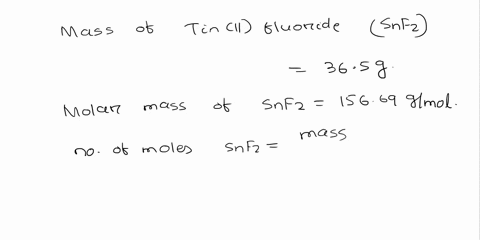 Mass of Tin(II) fluoride (SnF2)
= 36.5g.
Molar mass of SnF2 = 156.69 g/mol.
no. of moles SnF2 = mass